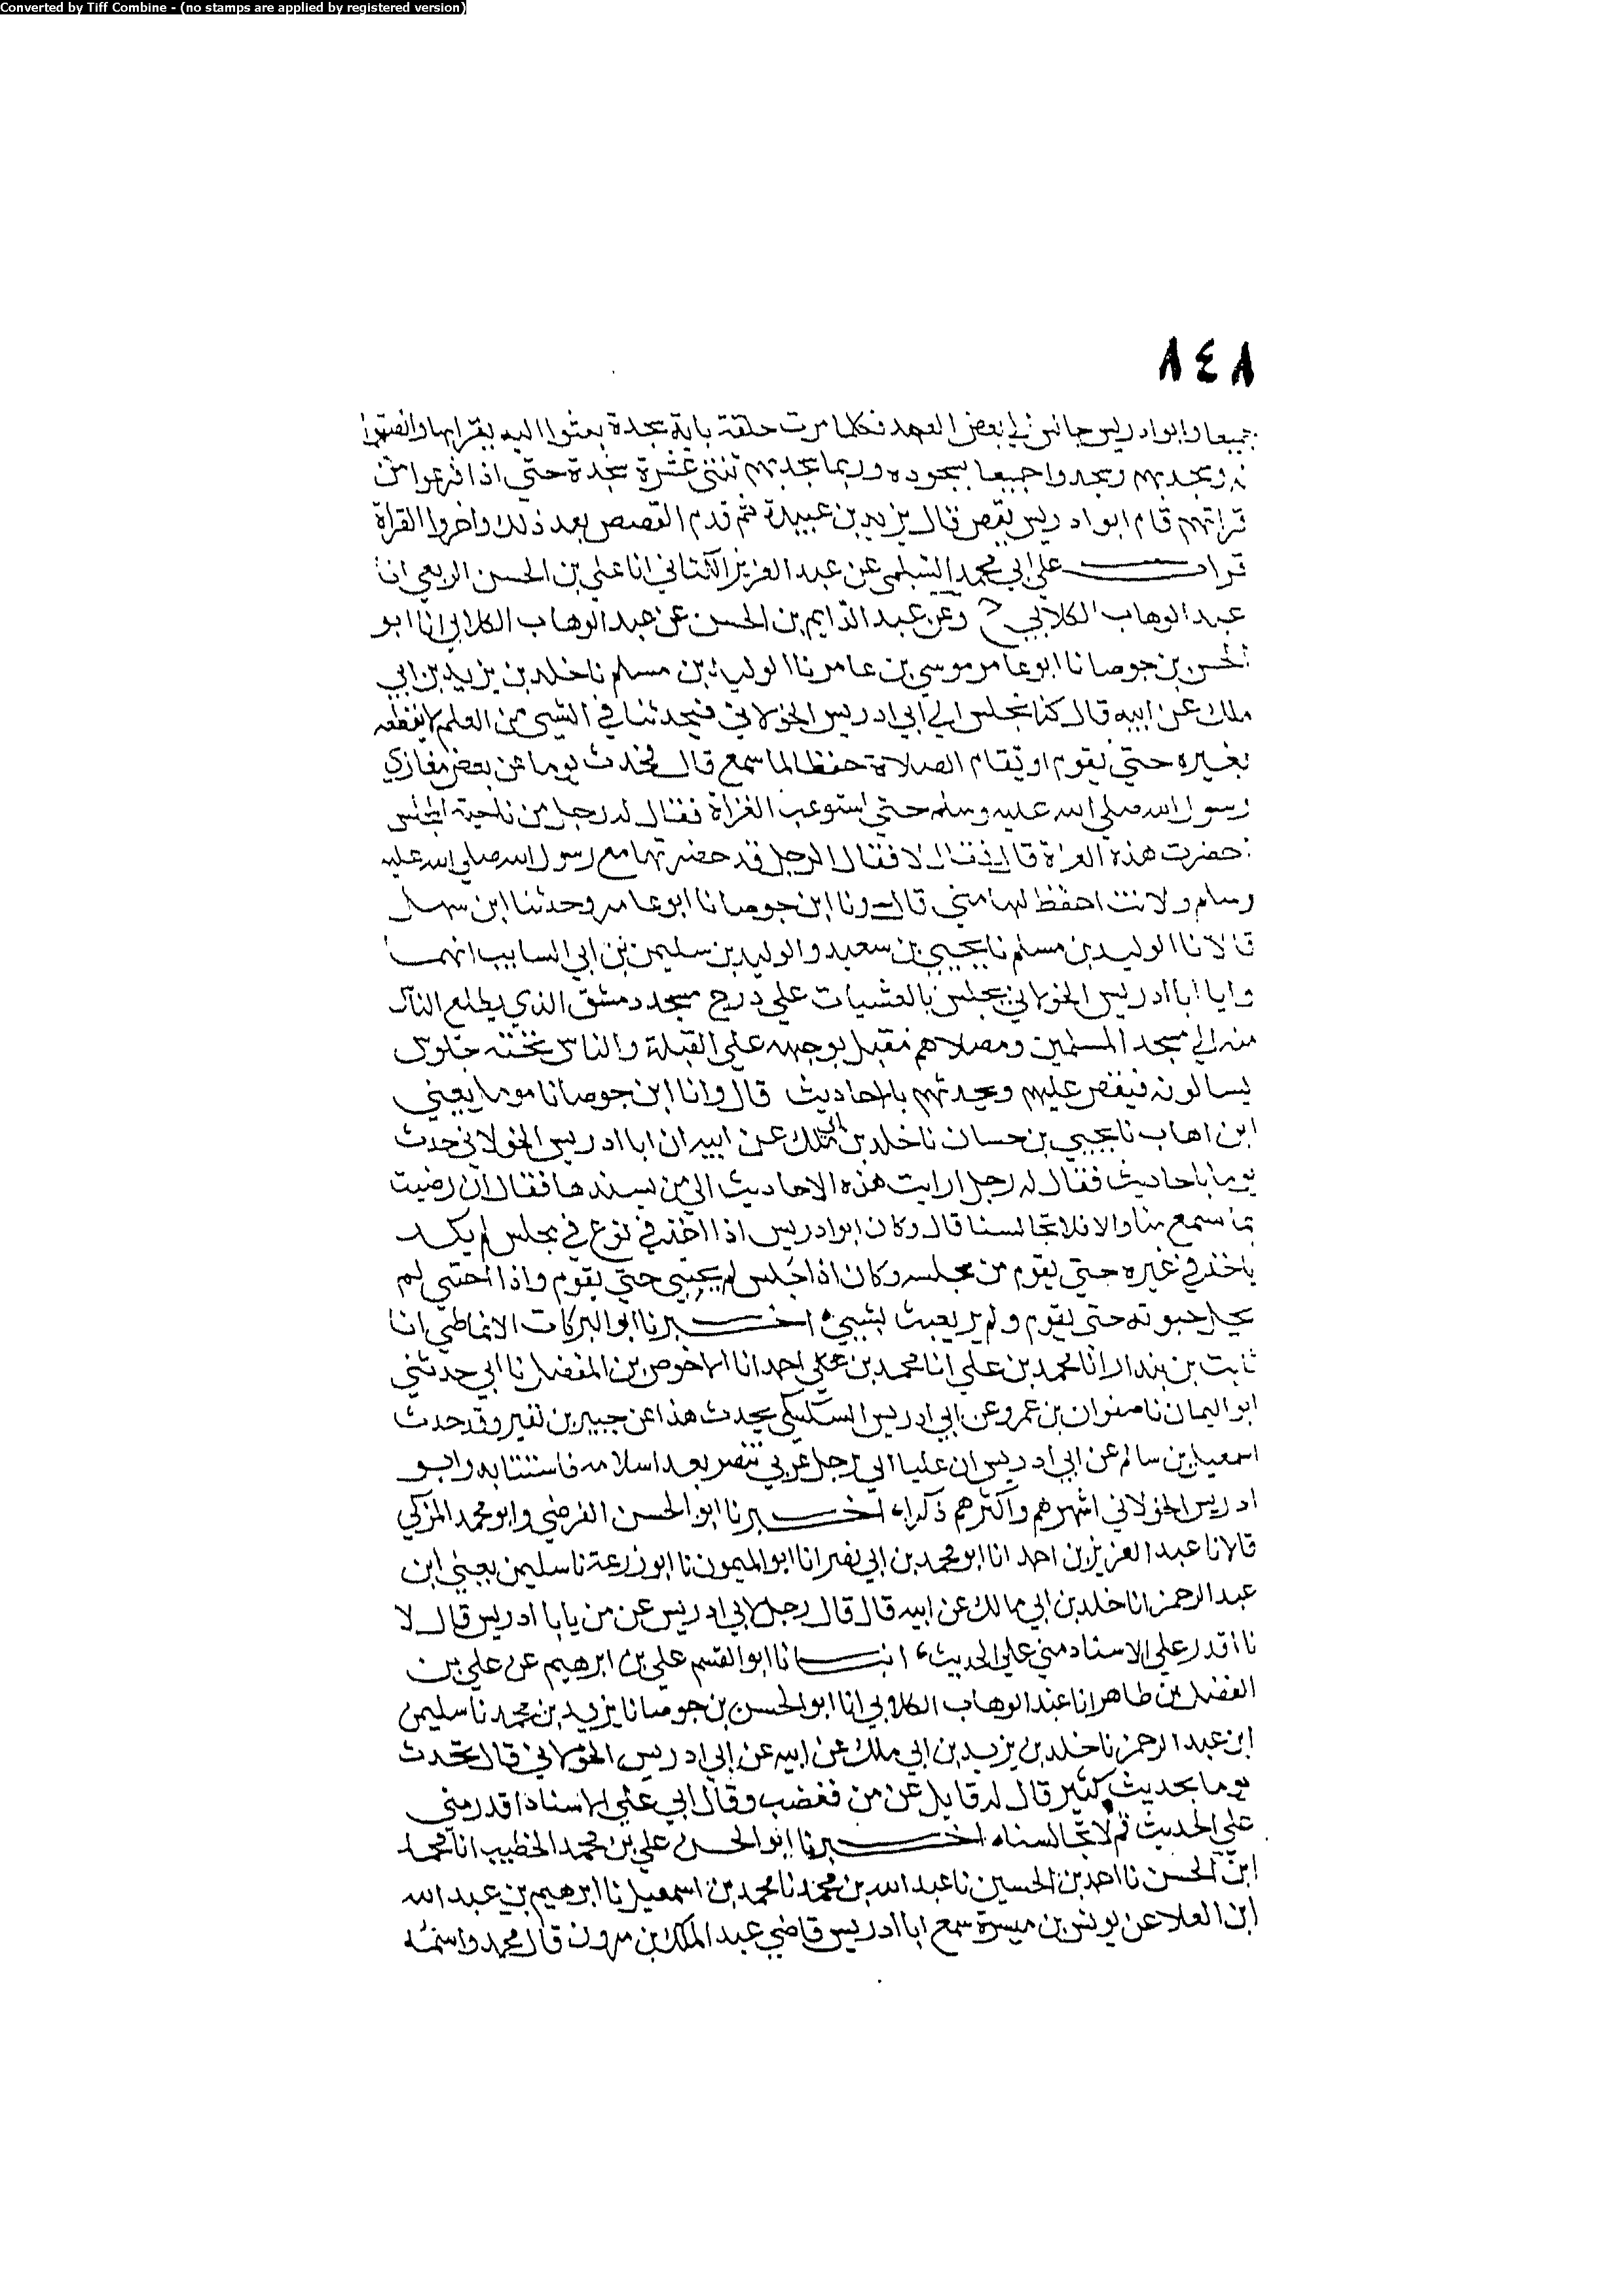 Converted by Tiff Combine - (no stamps are applied by registered version)
٨٤٨
جميعا وابو ادريس جالس في بعض العهد فكلما مرت حلقة باية سجدة بعثوا اليه يقرابها وانصتوا
له ويسجد بهم وسجدوا جميعا بسجوده وربما سجد بهم ثنتي عشرة سجدة حتي اذا فرغوا من
قراتهم قام ابو ادريس يقص قال يزيد بن عبيدة ثم قدم القصص بعد ذلك واخروا القراة
قرات علي ابي محمد السلمي عن عبد العزيز الكتاني انا علي بن الحسن الربعي انا
عبد الوهاب الكلابي ح وعن عبد الدايم بن الحسن عن عبد الوهاب الكلابي انا ابو
الحسن بن جوصا نا ابو عامر موسي بن عامر نا الوليد بن مسلم نا خلد بن يزيد بن ابي
ملك عن ابيه قال كنا نجلس الي ابي ادريس الخولاني فيحدثنا في الشي من العلم لا يقطعه
بغيره حتي يقوم او تقام الصلاة حفظا لما سمع قال فحدث يوما عن بعض مغازي
رسول الله صلي الله عليه وسلم حتي استوعب الغزاة فقال له رجل من ناحية المجلس
احضرت هذه الغزاة قال فقال لا فقال الرجل قد حضرتها مع رسول الله صلي الله عليه
وسلم ولانت احفظ لها مني قال ونا ابن جوصا نا ابو عامر وحدثنا ابن سهل
قالا نا الوليد بن مسلم نا يحيي بن سعيد والوليد بن سليمن بن ابي السايب انهما
رايا ابا ادريس الخولاني يجلس بالعشيات علي درج مسجد دمشق الذي يطلع الناس
منه الي مسجد المسلمين ومصلاهم مقبل بوجهه علي القبلة والناس تحته جلوس
يسالونه فيقص عليهم ويحدثهم بالاحاديث قال وانا ابن جوصا نا مومل يعني
ابن اهاب نا يحيي بن حسان نا خلد بن ابي ملك عن ابيه ان ابا ادريس الخولاني حدث
يوما باحاديث فقال له رجل ارايت هذه الاحاديث الي من يسندها فقال ان رضيت
بما سمع منا والا فلا تجالسنا قال وكان ابو ادريس اذا اخذ في نوع في مجلس لم يكد
ياخذ في غيره حتي يقوم من مجلسه وكان اذا جلس لم يحتبي حتي يقوم واذا احتبي لم
يحل حبوته حتي يقوم ولم ير يعبث بشيء اخبرنا ابو البركات الانماطي انا
ثابت بن بندار انا محمد بن علي انا محمد بن احمد انا الاحوص بن المفضل نا ابي حدثني
ابو اليمان نا صفوان بن عمرو عن ابي ادريس السكسكي يحدث هذا عن جبير بن نفير وقد حدث
اسمعيل بن سالم عن ابي ادريس ان عليا اتي برجل عربي تنصر بعد اسلامه فاستتابه وابو
ادريس الخولاني اشهرهم واكثرهم ذكرا، اخبرنا ابو الحسن الفرضي وابو محمد المزكي
قالا نا عبد العزيز بن احمد انا ابو محمد بن ابي نصر انا ابو الميمون نا ابو زرعة نا سليمن يعني ابن
عبد الرحمن انا خلد بن ابي مالك عن ابيه قال قال رجل لابي ادريس عن من يابا ادريس قال لا
نا اقدر علي الاسناد مني علي الحديث، انبانا ابو القسم علي بن ابرهيم عن علي بن
الفضل بن طاهر انا عبد الوهاب الكلابي انا ابو الحسن بن جوصا نا يزيد بن محمد نا سليمن
ابن عبد الرحمن نا خلد بن يزيد بن ابي ملك عن ابيه عن ابي ادريس الخولاني قال تحدث
يوما بحديث كثير قال له قايل عن من فغضب وقال اني علي الاسناد اقدر مني
علي الحديث قم لا تجالسنا، اخبرنا ابو الحسن علي بن محمد الخطيب انا محمد
ابن الحسن نا احمد بن الحسين نا عبد الله بن محمد نا محمد بن اسمعيل نا ابرهيم بن عبد الله
ابن العلا عن يونس بن ميسرة سمع ابا ادريس قاضي عبد الملك بن مرون قال محمد واسمه